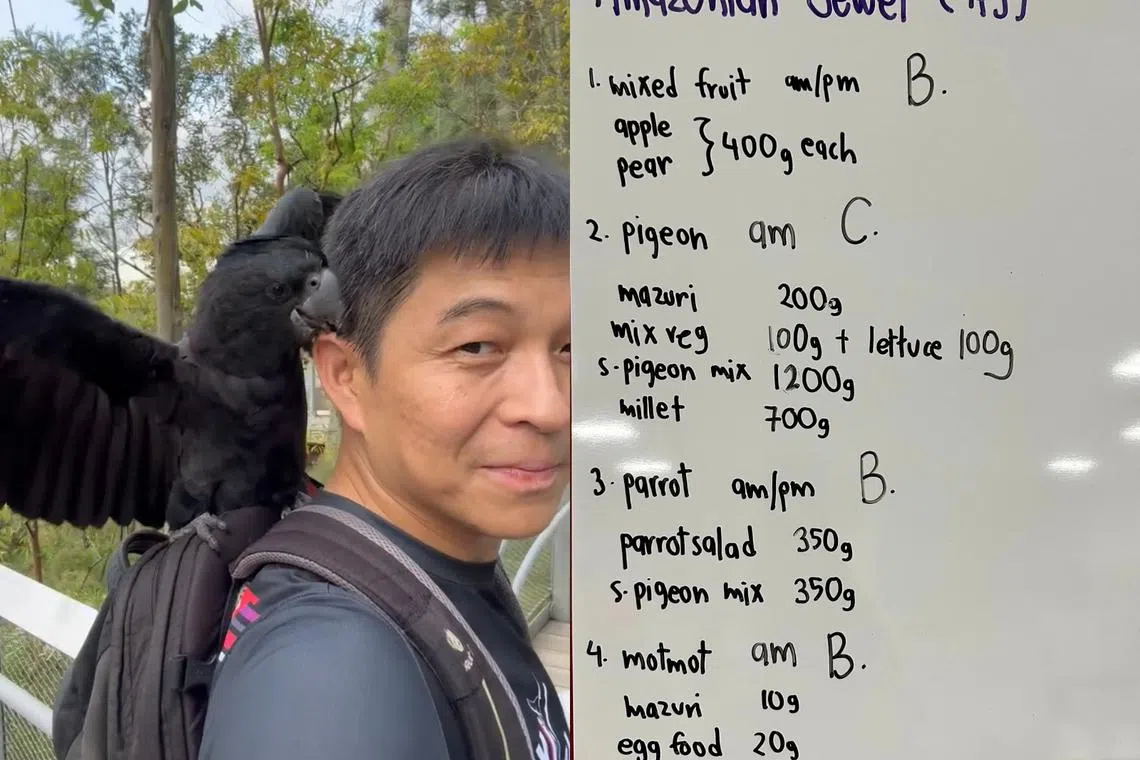 Amazonian Jewel (AJ)
1. mixed fruit am/pm B.
apple
pear } 400g each
2. pigeon am C.
mazuri 200g
mix veg 100g + lettuce 100g
s-pigeon mix 1200g
millet 700g
3. parrot am/pm B.
parrot salad 350g
s-pigeon mix 350g
4. motmot am B.
mazuri 10g
egg food 20g